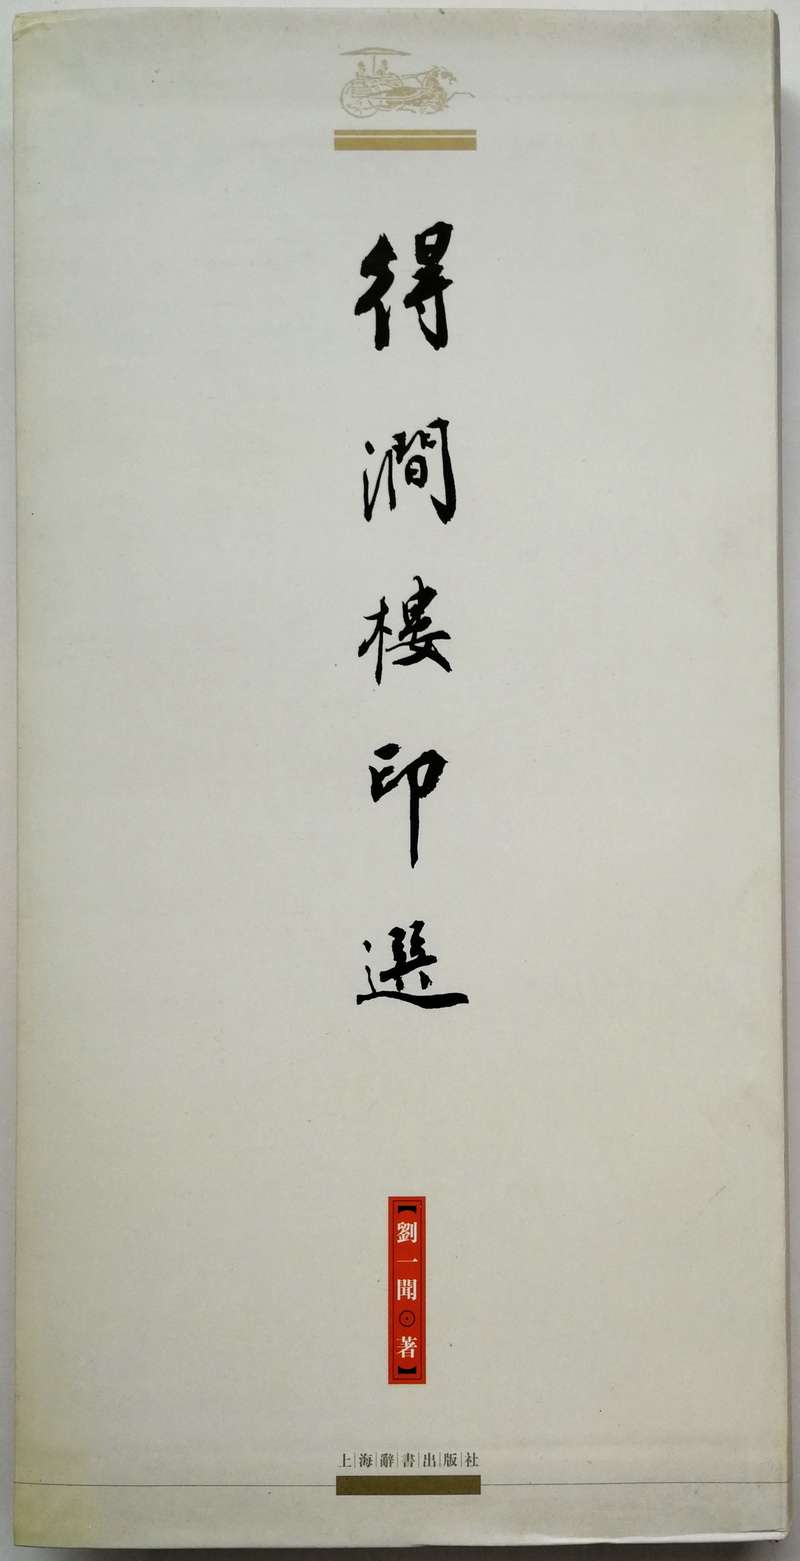 得澗樓印選
【劉一聞⊙著】
上海辭書出版社